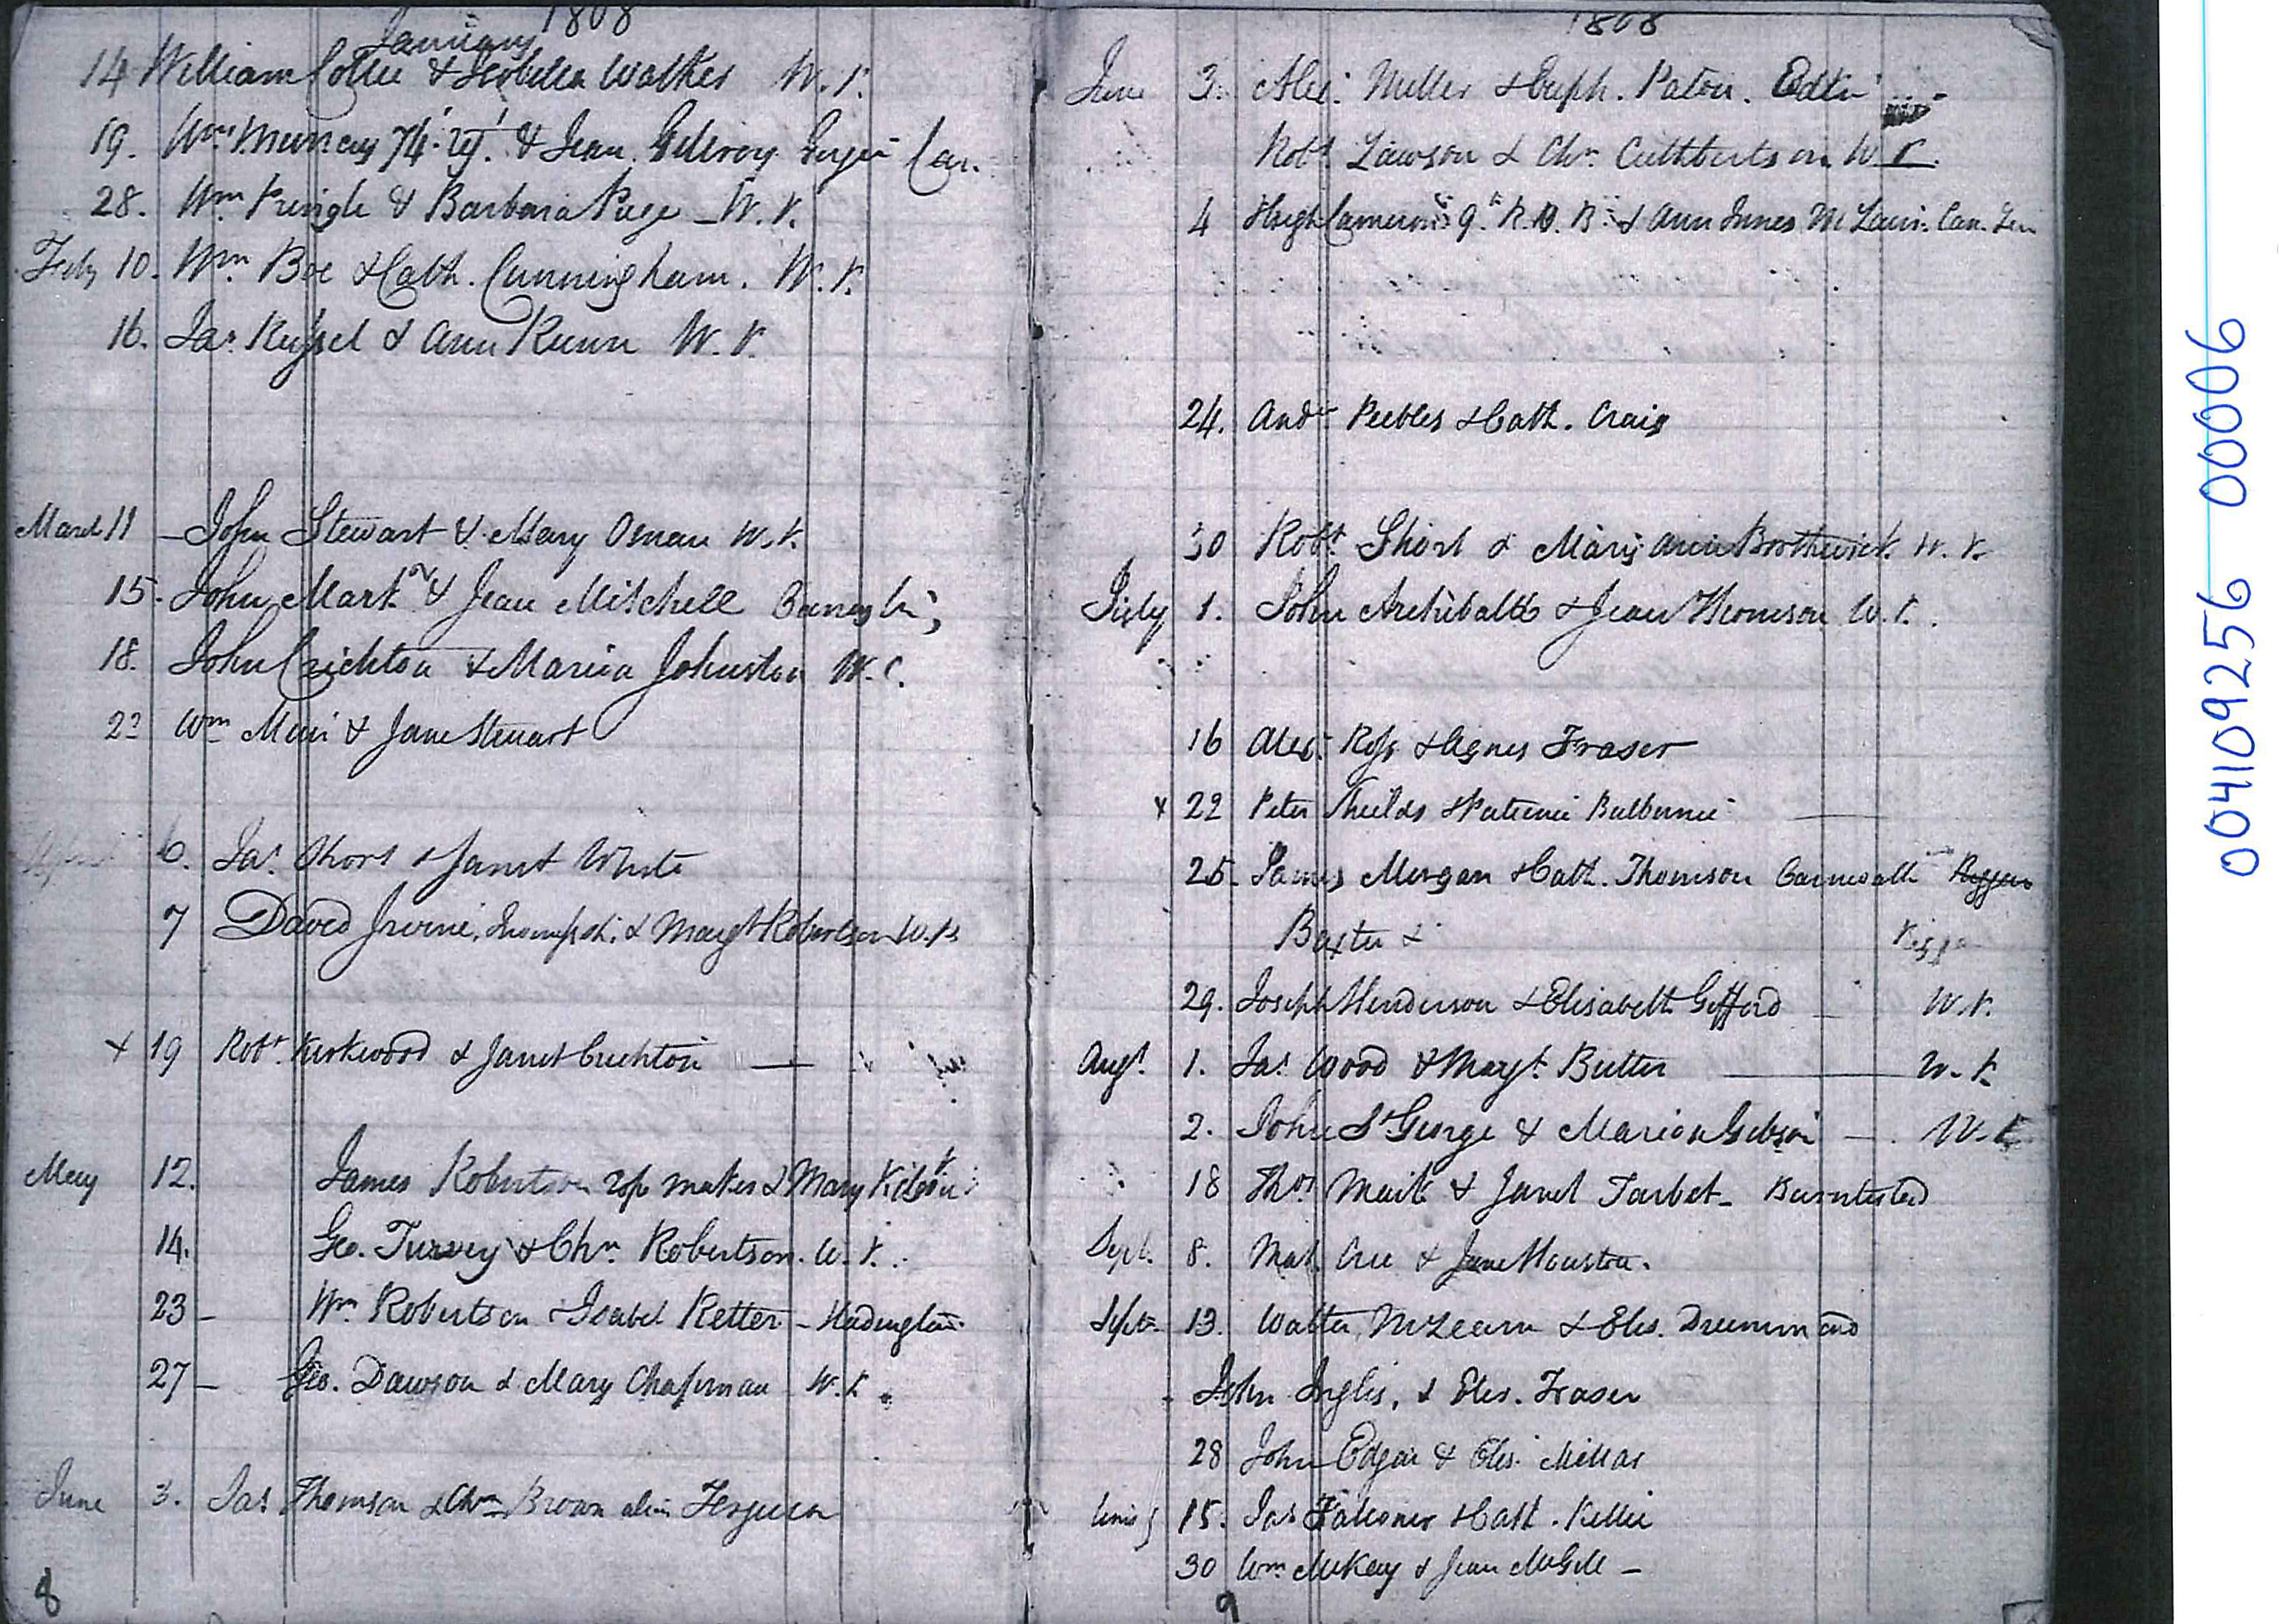 1808
January
14 William Collie & Isobella Walker W. K.
19. Wm. Murray 74. & Jean Gilroy Can.
28. Wm Pringle & Barbara Page W. K.
Feby 10. Wm. Boe & Cath. Cunningham. W. K.
16. Jas. Russel & Ann W. K.
March 11 John Stewart & Mary W. K.
15. John & Jean Mitchell
18. John Crichton & Marion Johnston W. K.
Wm Muir & Jane Stewart
6. Jas. Short & Janet White
7 David Irvine, & Margt Robertson W. K.
x 19 Robt. Kirkwood & Janet Crichton
May 12. James Robertson rope maker & Mary
14. Geo. Turvey & Chrn. Robertson. W. K.
23 Wm Robertson & Isabel Retter - Hadington
27 Geo. Dawson & Mary Chapman W. K.
June 3. Jas Thomson & Chrn Brown alias Ferguson
8
1808
June 3. Alexr. Miller & Euph. Paton. Edin
Robt Lawson & Chrn. Cuthbertson W. K.
4 Hugh Cameron 9th R. & Ann Innes Can.
24. Andw Peebles & Cath. Craig
30 Robt. Short & Mary Ann Brothwick W. K.
July 1. John Archibald & Jean Thomson W. K.
16 Alexr. Ross & Agnes Fraser
x 22 Peter Sheilds & Balbernie
25. James Morgan & Cath. Thomson
Baxter &
29. Joseph Henderson & Elisabeth Gifford W. K.
Augt. 1. Jas. Wood & Margt. Butter W. K.
2. John St George & Marion Gibson W. K.
18 Thos & Janet Tarbet
Sept. 8. Mal. & Jane Houston.
Septr. 13. Walter & Elis. Drummond
John Inglis, & Elis. Fraser
28 John Edgar & Elis. Millar
15. Jas Falconer & Cath. Kellie
30 Wm McKay & Jean McGill
9
004109256 00006